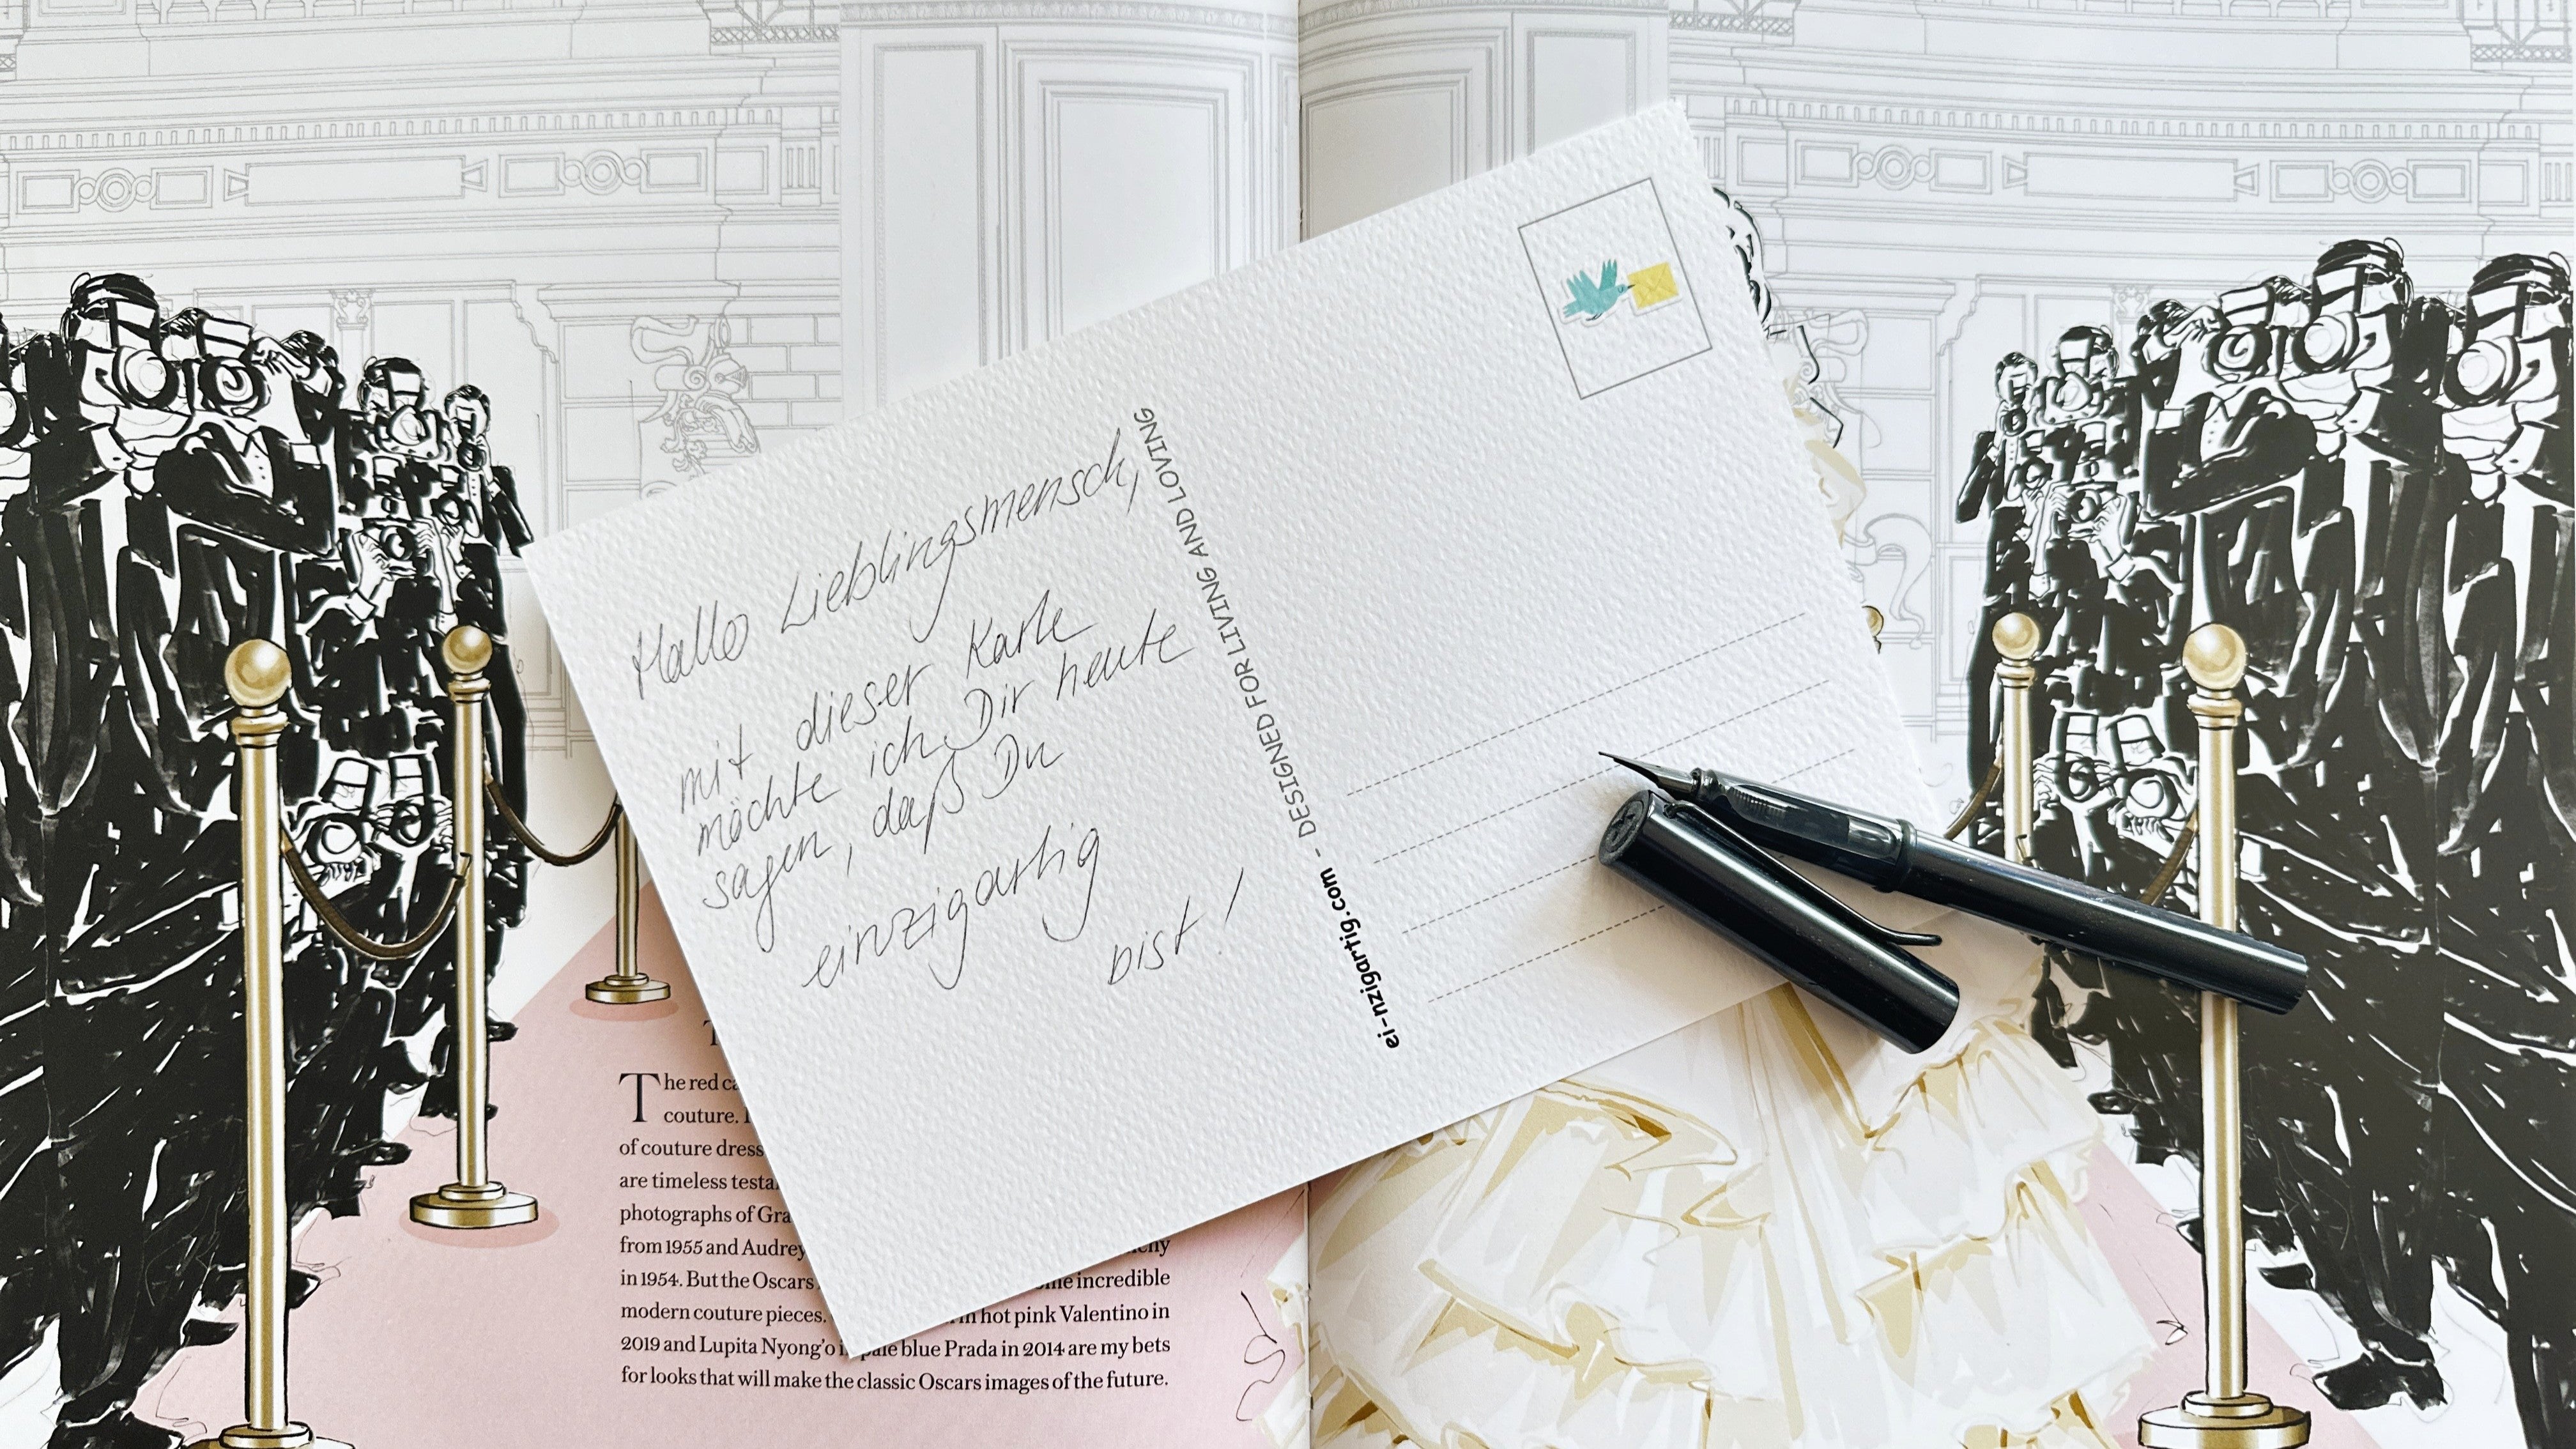 Hallo Lieblingsmensch,
mit dieser Karte
möchte ich Dir heute
sagen, daß Du
einzigartig
bist!
ei-nzigartig.com - DESIGNED FOR LIVING AND LOVING
T
The red
couture.
of couture dress
are timeless
photographs of
from 1955 and Audrey
in 1954. But the Oscars incredible
modern couture pieces. in hot pink Valentino in
2019 and Lupita Nyong'o pale blue Prada in 2014 are my bets
for looks that will make the classic Oscars images of the future.